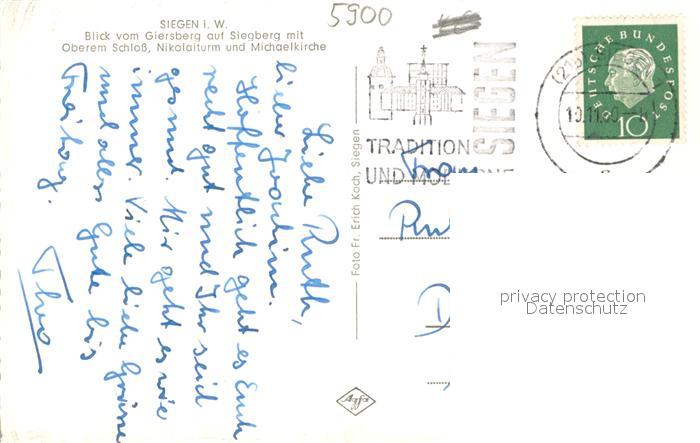 SIEGEN i. W.
Blick vom Giersberg auf Siegberg mit
Oberem Schloß, Nikolaiturm und Michaelkirche
5900
Liebe Ruth,
lieber Joachim.
Hoffentlich geht es Euch
recht gut und Ihr seid
gesund. Mir geht es wie
immer. Viele liebe Grüsse
und alles Gute bis
Freitag.
Theo
Foto Fr. Erich Koch, Siegen
Agfa
TRADITION
UND
SIEGEN
DEUTSCHE BUNDESPOST
10
privacy protection
Datenschutz